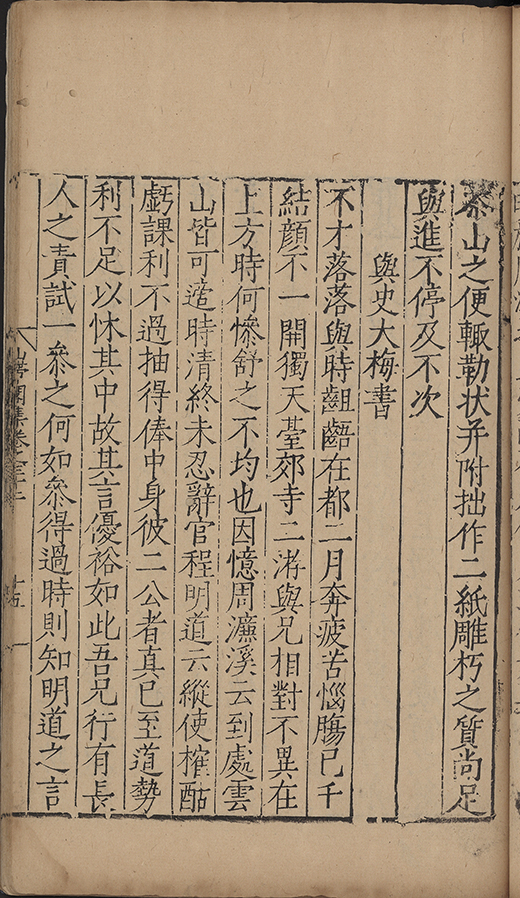 泰山之便輙勒状并附拙作二紙雕朽之質尚足
與進不停及不次
與史大梅書
不才落落與時齟齬在都二月奔疲苦惱膓已千
結顔不一開獨天臺郊寺二㳺與兄相對不異在
上方時何慘舒之不均也因憶周濂溪云到處雲
山皆可遊時清終未忍辭官程明道云縱使榷酤
虧課利不過抽得俸中身彼二公者真已至道勢
利不足以怵其中故其言優裕如此吾兄行有長
人之責試一叅之何如叅得過時則知明道之言
集卷之三
十五